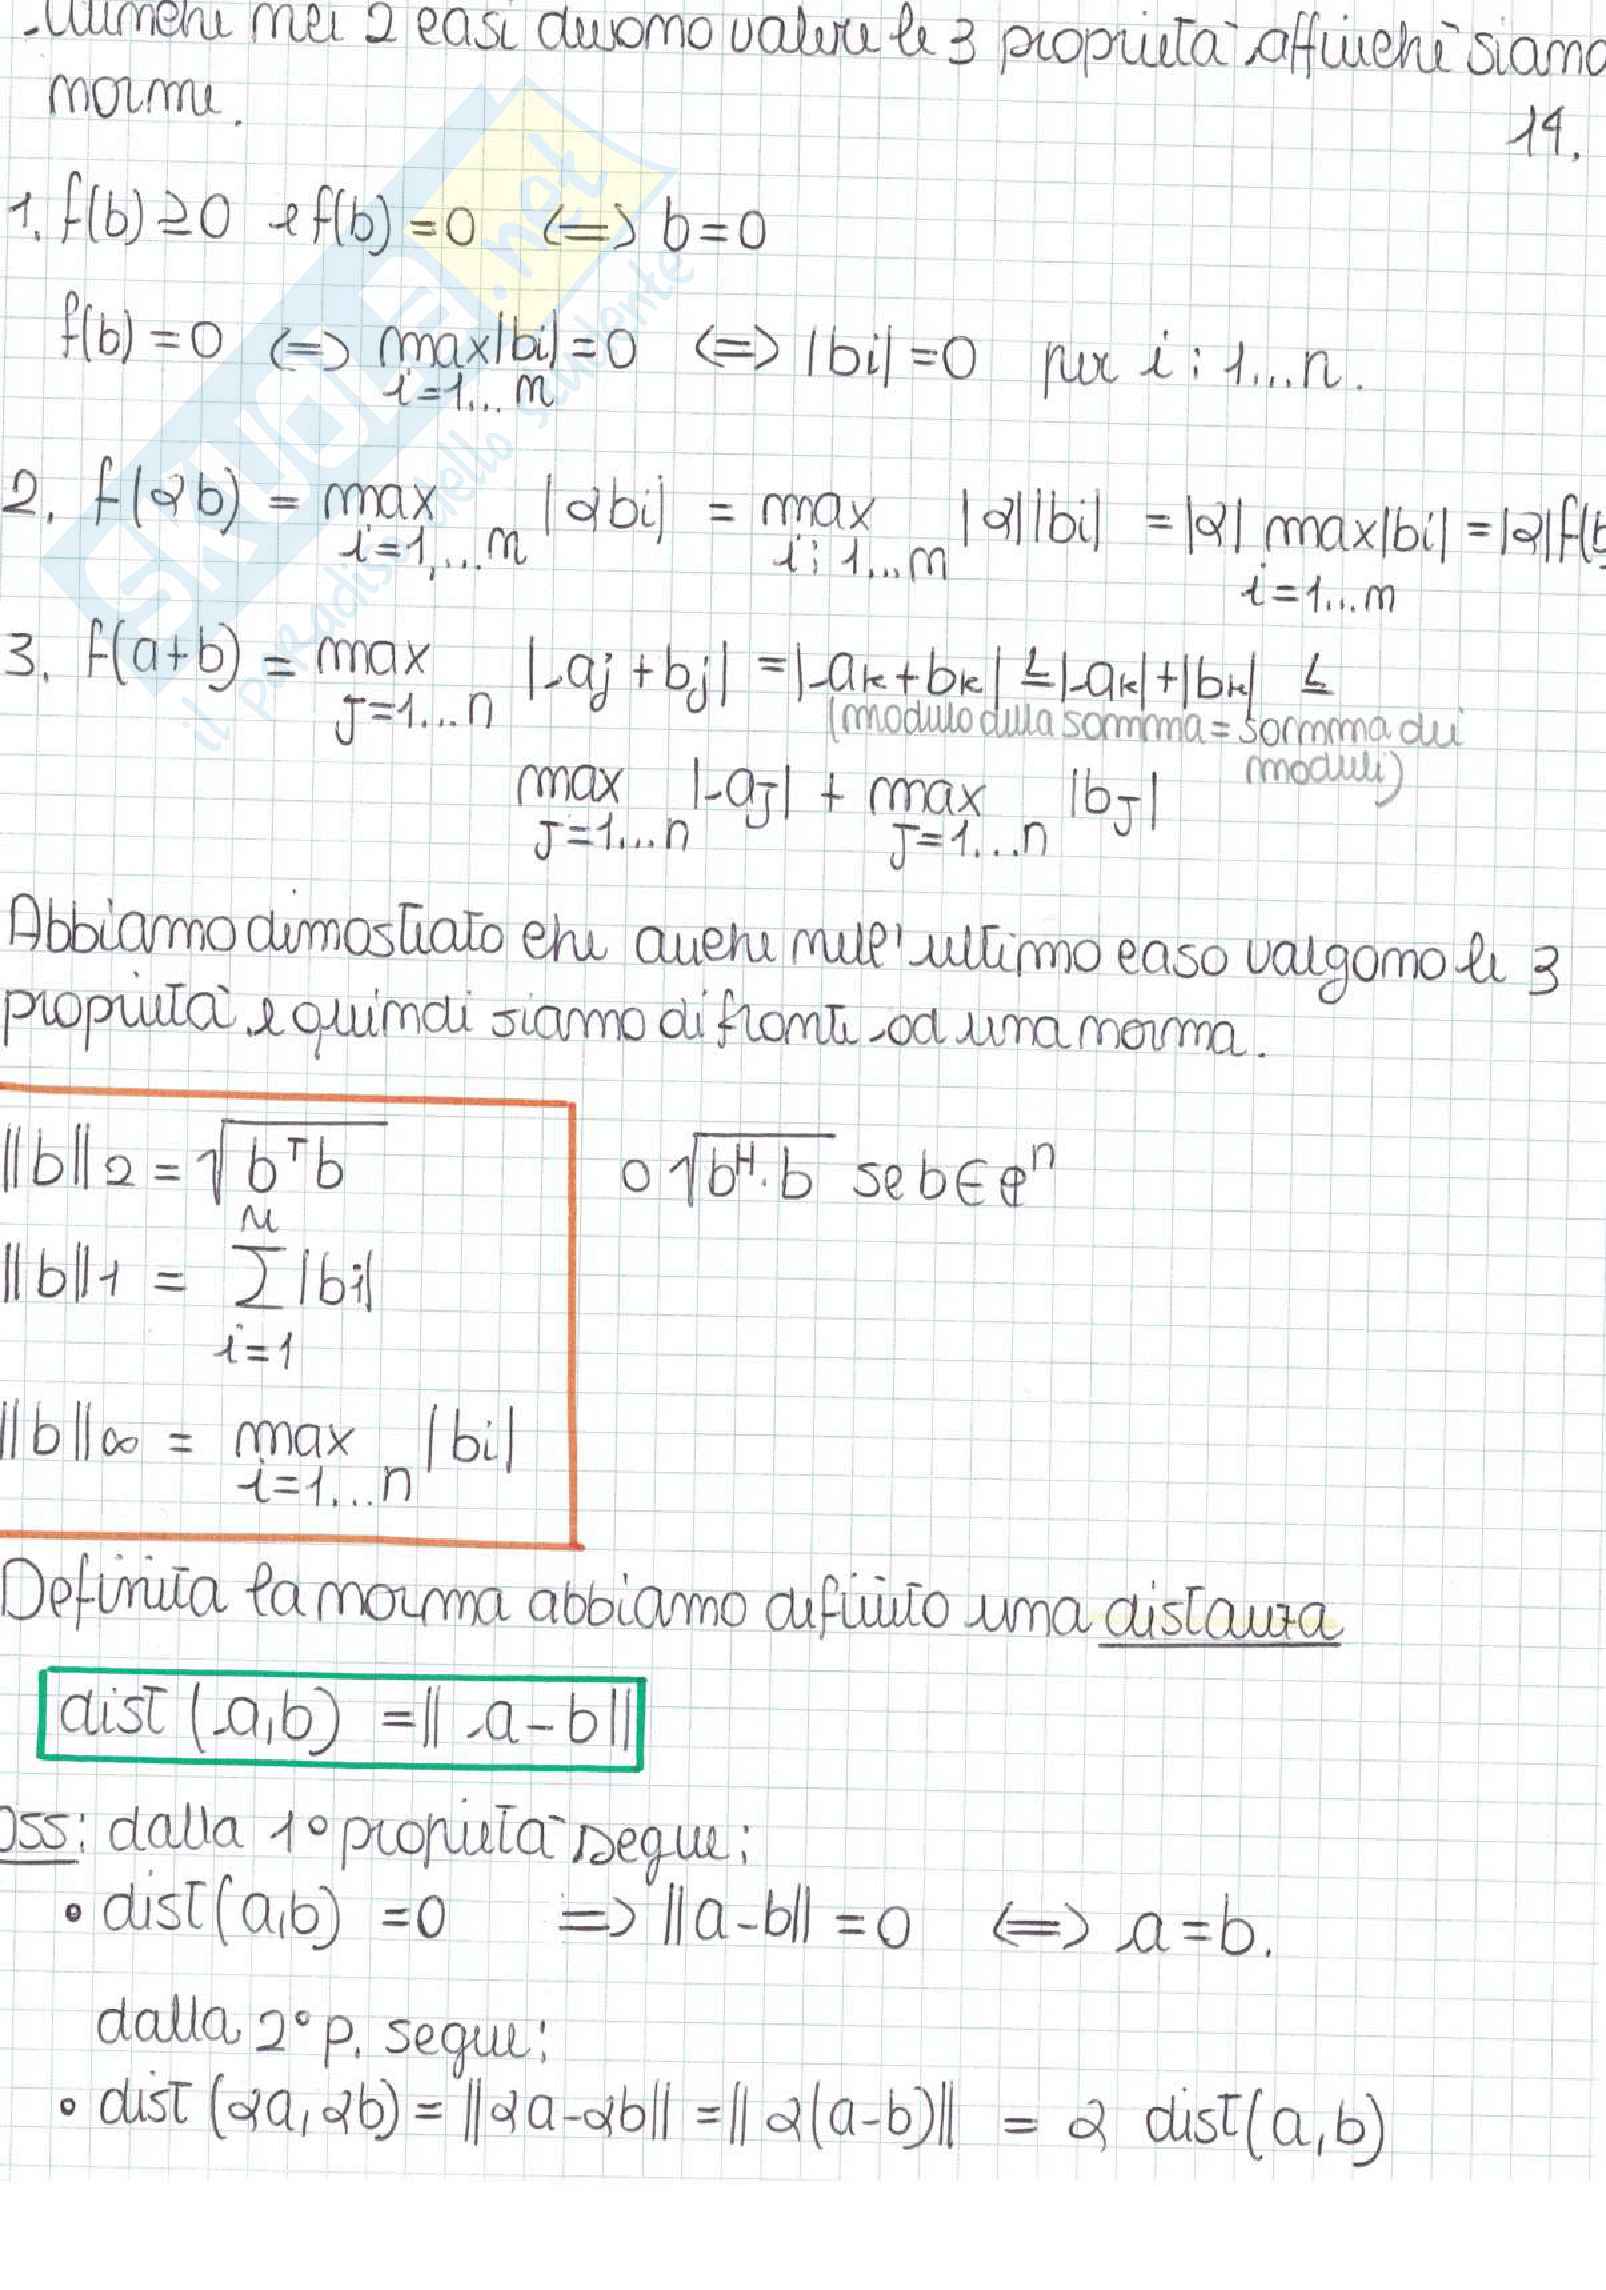 Anche nei 2 casi devono valere le 3 proprietà affinchè siano
norme.
14.
1. f(b) ≥ 0 e f(b) = 0 <=> b = 0
f(b) = 0 <=> max|bi| = 0 <=> |bi| = 0 per i: 1...n.
i=1...n
2. f(αb) = max |αbi| = max |α||bi| = |α| max|bi| = |α|f(b
i=1,...n i: 1...n i=1...n
3. f(a+b) = max |aj + bj| = |ak + bk| ≤ |ak| + |bk| ≤
J=1...n (modulo della somma = somma dei
moduli)
max |aJ| + max |bJ|
J=1...n J=1...n
Abbiamo dimostrato che anche nell'ultimo caso valgono le 3
proprietà e quindi siamo di fronte ad una norma.
||b||2 = √(bᵀb) o √(bᴴ·b) se b∈ℂⁿ
n
||b||1 = Σ|bi|
i=1
||b||∞ = max |bi|
i=1...n
Definita la norma abbiamo definito una distanza
dist(a,b) = ||a-b||
Oss: dalla 1° proprietà segue:
• dist(a,b) = 0 => ||a-b|| = 0 <=> a = b.
dalla 2° p. segue:
• dist(αa, αb) = ||αa-αb|| = ||α(a-b)|| = α dist(a,b)
SKUOLA.net
il paradiso dello studente